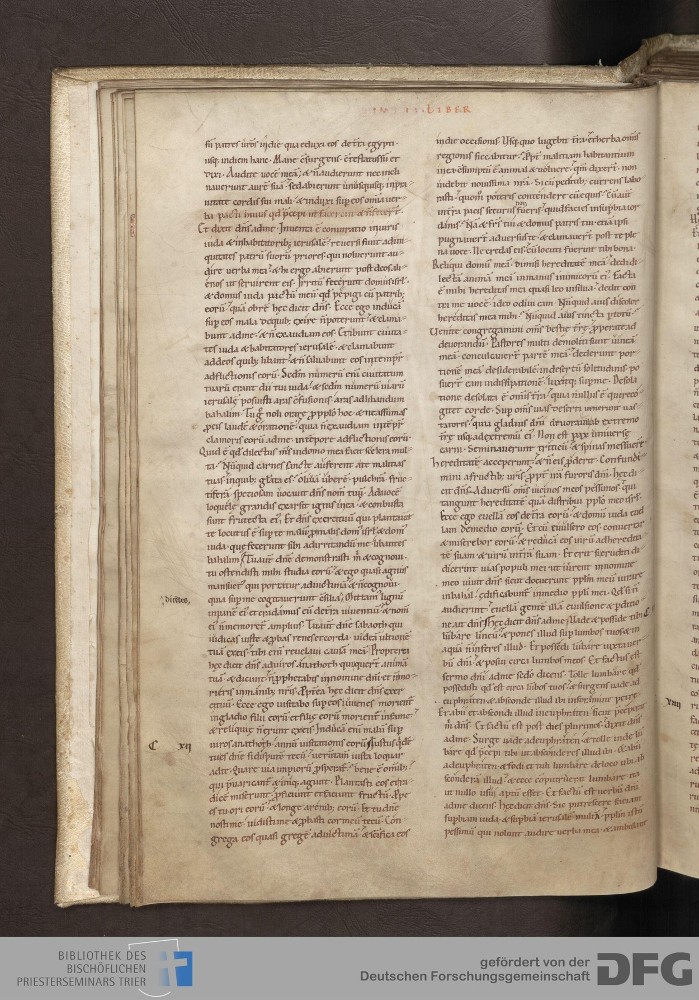 LIBER
in die qua eduxi eos de
usq; in diem hanc. Mane consurgens contestatus sum et
dixi. Audite vocem meam; & non audierunt nec incli
naverunt aurem suam; sed abierunt unusquisque in pra
vitate cordis sui mali. & induxi sup eos omnia ver
ba pacti huius qd
Et dixit dns ad me. Inventa e coniuratio in viris
iuda & in habitatorib; ierusale. reversi sunt ad ini
quitates patru suoru priores. qui noluerunt au
dire verba mea. & hi ergo abierunt post deos ali
enos ut servirent eis.
& domus iuda pactu meu qd pepigi cu patrib;
eoru. qua obre hec dicit dns. Ecce ego inducam
sup eos mala de quib; exire n poterunt. & clama
bunt ad me. & n exaudiam eos. Et ibunt civita
tes iuda & habitatores ierusale. & clamabunt
ad deos quib; libant. & n salvabunt eos in tempr
adflictionis eoru. Secdm numeru eni civitatum
tuaru erant dii tui iuda. & secdm numeru viaru
ierusale posuisti aras confusionis. aras ad libandum
baalim. Tu g noli orare p pplo hoc. & ne assumas
p eis laude & oratione. quia n exaudiam in tempr
clamoris eoru ad me. in tempore adflictionis eoru
Quid e qd dilectus ms in domo mea fecit scelera mul
ta. Nuquid carnes sancte auferent a te malitias
tuas in quib; gliata es. oliva ubere. pulchra. fruc
tifera. speciosam vocavit dns nom tuu. Ad voce
loquele grandis exarsit ignis in ea. & combusta
sunt fruteta ei. Et dns exercituu qui plantavit
te locutus e sup te malu. p malis dom isrl & dom
iuda. que fecerunt sibi ad irritandu me libantes
baalim. Tu aute dne demonstrasti m & cognovi.
tu ostendisti mihi studia eoru. & ego quasi agnus
mansuet qui portatur ad victima. & n cognovi
quia sup me cogitaverunt consilia. Mittam lignu
in pane ei et eradamus eu de tra viventiu. & nom
ei n memoret amplius. Tu aut dne sabaoth qui
iudicas iuste & pbas renes & corda. videa ultione
tua ex eis. Tibi eni revelavi causa mea. Propterea
hec dicit dns ad viros anathoth. qui querunt anima
tua. & dicunt. n pphetabis in nomine dni. et n mo
rieris in manib; nris. Pptea hec dicit dns exer
cituu. Ecce ego visitabo sup eos. iuvenes morient
in gladio. filii eoru et filie eoru morient in fame.
& reliquie n erunt ex eis. Inducam eni malu sup
viros anathoth. annu visitationis eoru. Iustus qde
tu es dne si disputem tecu. verutam iusta loquar
ad te. Quare via impioru pspera. bene e omib;
qui pvaricant & iniq; agunt. Plantasti eos et ra
dice miserunt. pficiunt et faciunt fructu. Ppe
es tu ori eoru. & longe a renib; eoru. Et tu dne
nosti me vidisti me. & pbasti cor meu tecu. Con
grega eos quasi grege ad victima. & scifica eos
directos
C xii
in die occisionis. Usq; quo lugebit tra. et herba omis
regionis siccabitur. Ppt malitiam habitantium
in ea consumptu e animal & volucre. qm dixert. non
videbit novissima nra. Si cu peditib; currens labo
rasti. quom poteris contendere cu equis. Cu aut
in tra pacis secur fueris. quid facies in supbia ior
danis. Na & frs tui & domus patris tui etia ipsi
pugnavert adversu te. & clamavert post te ple
na voce. Ne credas eis cu locuti fuerint tibi bona.
Reliqui domu mea. dimisi hereditate mea. dedi di
lecta anima mea in manu inimicoru ei. Facta
e mihi hereditas mea quasi leo in silva. dedit con
tra me voce. ideo odivi eam. Nuquid avis discolor
hereditas mea mihi. Nuquid avis tincta p totu.
Venite congregamini oms bestie tre. pperate ad
devorandu. Pastores multi demoliti sunt vinea
mea. conculcavert parte mea. dederunt por
tione mea desiderabile. in desertu solitudinis. po
suert eam in dissipatione. luxitq; sup me. Desola
tione desolata e omis tra. quia nullus e qui reco
gitet corde. Sup oms vias deserti venerunt vas
tatores. quia gladius dni devoravit ab extremo
tre usq; ad extremu ei. Non est pax universe
carni. Seminaverunt triticu. & spinas messuert.
Hereditate acceperunt. & n eis pderit. Confundi
mini a fructib; vris. ppt ira furoris dni. hec di
cit dns. Adversu oms vicinos meos pessimos. qui
tangunt hereditate qua distribui pplo meo isrl.
Ecce ego evella eos de tra eoru. & domu iuda evel
lam de medio eoru. Et cu evulsero eos. convertar
& miserebor eoru. & reduca eos. viru ad heredita
te suam. & viru in tra suam. Et erit si eruditi di
dicerint vias populi mei. ut iurent in nomine
meo vivit dns. sicut docuerunt pplm meu iurare
in baal. edificabunt in medio ppli mei. Qd si n
audierint. evella gente illa evulsione & pditio
ne. ait dns. Hec dicit dns ad me. Vade & posside tibi
lubare lineu. & pones illud sup lumbos tuos. & in
aqua n inferes illud. Et possedi lubare iuxta ver
bu dni. & posui circa lumbos meos. Et factus est
sermo dni ad me secdo dicens. Tolle lumbare qd
possedisti qd est circa lubos tuos. & surgens vade ad
euphraten & absconde illud ibi in foramine petre.
Et abii et abscondi illud in euphraten. sicut pcepat
m dns. Et factu est post dies plurimos. dixit dns
ad me. Surge vade ad euphraten. & tolle inde lu
bare qd pcepi tibi ut absconderes illud ibi. & abii
ad euphraten. & fodi et tuli lumbare de loco ubi ab
sconderam illud. & ecce coputruerat lumbare. ita
ut nullo usui aptu esset. Et factu est verbu dni
ad me dicens. Hec dicit dns. Sic putrescere faciam
supbiam iuda. & supbia ierusale multa. pplm istu
pessimu. qui nolunt audire verba mea. & ambulant
C
xiii
BIBLIOTHEK DES
BISCHÖFLICHEN
PRIESTERSEMINARS TRIER
gefördert von der
Deutschen Forschungsgemeinschaft
DFG